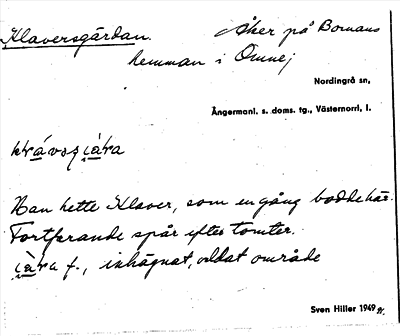 Klaversgårdan. Åker på Bomans
hemman i Omnej
Nordingrå sn,
Ångermanl. s. doms. tg., Västernorrl, l.
Han hette Klaver, som en gång bodde här.
Fortfarande spår efter tomter.
f., inhägnat, odlat område
Sven Hiller 1949